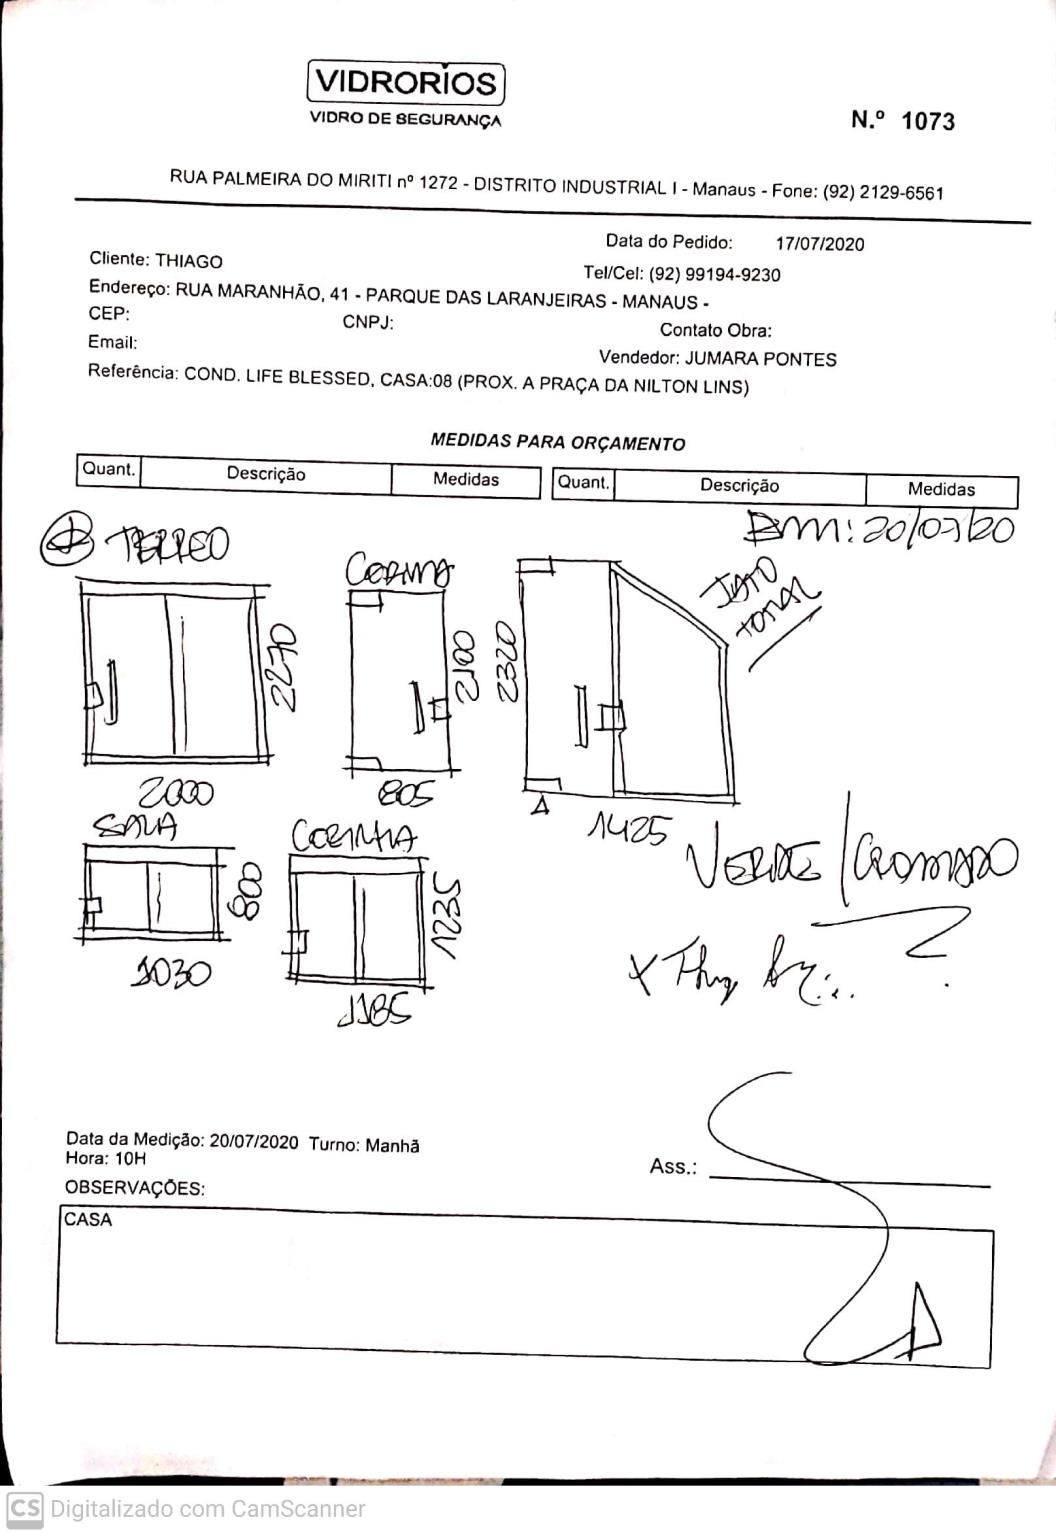 VIDRORIOS
VIDRO DE SEGURANÇA
N.º 1073
RUA PALMEIRA DO MIRITI nº 1272 - DISTRITO INDUSTRIAL I - Manaus - Fone: (92) 2129-6561
Data do Pedido: 17/07/2020
Cliente: THIAGO
Tel/Cel: (92) 99194-9230
Endereço: RUA MARANHÃO, 41 - PARQUE DAS LARANJEIRAS - MANAUS -
CEP: CNPJ: Contato Obra:
Email:
Vendedor: JUMARA PONTES
Referência: COND. LIFE BLESSED, CASA:08 (PROX. A PRAÇA DA NILTON LINS)
MEDIDAS PARA ORÇAMENTO
Quant. Descrição Medidas Quant. Descrição Medidas
BM: 20/07/20
TERREO
COZINHA
JATO
TOTAL
2270
2100
2320
2000
805
1425
SALA
COZINHA
VERDE/CROMADO
600
1235
1030
1185
Data da Medição: 20/07/2020 Turno: Manhã
Hora: 10H
Ass.:
OBSERVAÇÕES:
CASA
CS Digitalizado com CamScanner